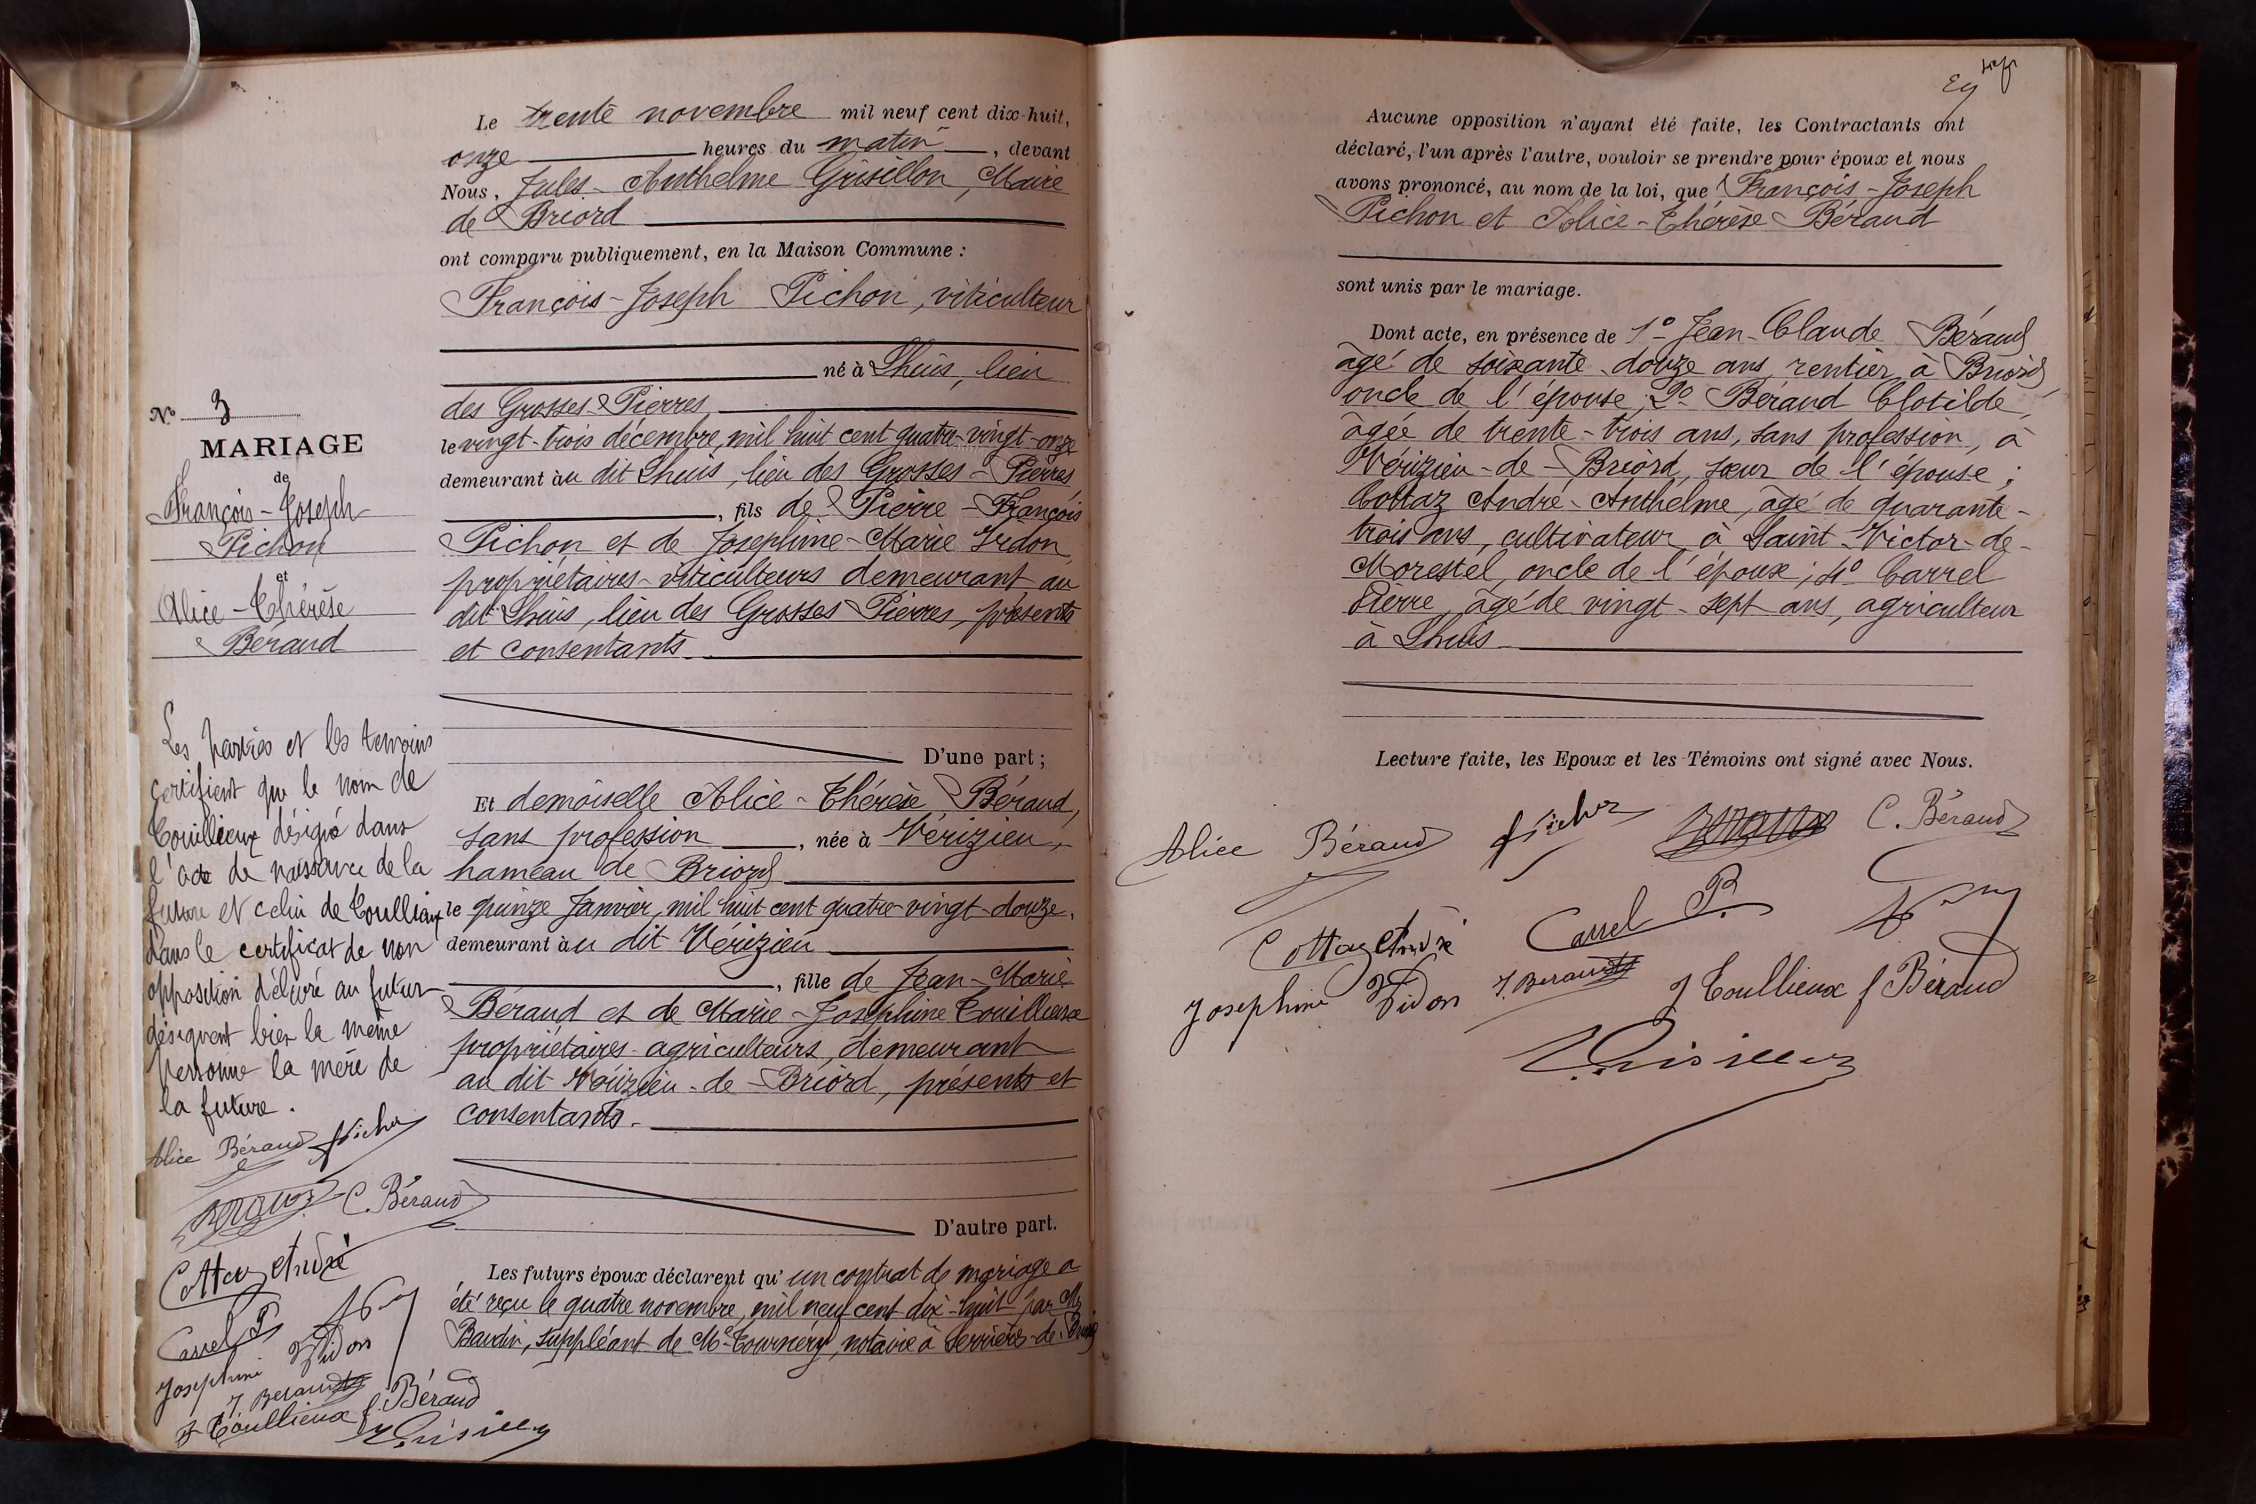 Le trente novembre mil neuf cent dix-huit,
onze heures du matin, devant
Nous, Jules-Anthelme Grisillon, Maire
de Briord
ont comparu publiquement, en la Maison Commune :
François-Joseph Pichon, viticulteur
né à Lhuis, lieu
des Grosses-Pierres
le vingt-trois décembre, mil huit cent quatre-vingt-onze
demeurant au dit Lhuis, lieu des Grosses-Pierres
, fils de Pierre-François
Pichon et de Josephine-Marie
propriétaires-viticulteurs demeurant au
dit Lhuis, lieu des Grosses Pierres, présents
et consentants
D'une part ;
Et demoiselle Alice-Thérèse Béraud,
sans profession, née à Vérizieu,
hameau de Briord
le quinze Janvier, mil huit cent quatre-vingt-douze,
demeurant au dit Vérizieu
, fille de Jean-Marie
Béraud et de Marie-Joséphine Couillieux
propriétaires-agriculteurs, demeurant
au dit Vérizieu-de-Briord, présents et
consentants.
D'autre part.
Les futurs époux déclarent qu'un contrat de mariage a
été reçu le quatre novembre, mil neuf cent dix-huit par Me
Baudin, suppléant de Me Tournery, notaire à Serrières-de-Briord
No 3
MARIAGE
de
François-Joseph
Pichon
et
Alice-Thérèse
Beraud
Les parties et les temoins
certifient que le nom de
Couillieux désigné dans
l'acte de naissance de la
future et celui de Coullieux
dans le certificat de non
opposition délivré au futur
désignent bien la même
personne la mère de
la future.
Alice Béraud
C. Béraud
Cottaz André
Carrel P
Josephine
J. Beraud
Coullieux f. Béraud
Grisillon
Aucune opposition n'ayant été faite, les Contractants ont
déclaré, l'un après l'autre, vouloir se prendre pour époux et nous
avons prononcé, au nom de la loi, que François-Joseph
Pichon et Alice-Thérèse Béraud
sont unis par le mariage.
Dont acte, en présence de 1º Jean-Claude Béraud
âgé de soixante-douze ans, rentier à Briord,
oncle de l'épouse ; 2º Béraud Clotilde,
âgée de trente-trois ans, sans profession, à
Vérizieu-de-Briord, sœur de l'épouse ;
Cottaz André-Anthelme, âgé de quarante-
trois ans, cultivateur à Saint-Victor-de-
Morestel, oncle de l'époux ; 4º Carrel
Pierre, âgé de vingt-sept ans, agriculteur
à Lhuis
Lecture faite, les Epoux et les Témoins ont signé avec Nous.
Alice Béraud
C. Béraud
Cottaz André
Carrel P.
Josephine
J. Beraud
Coullieux f Béraud
Grisillon